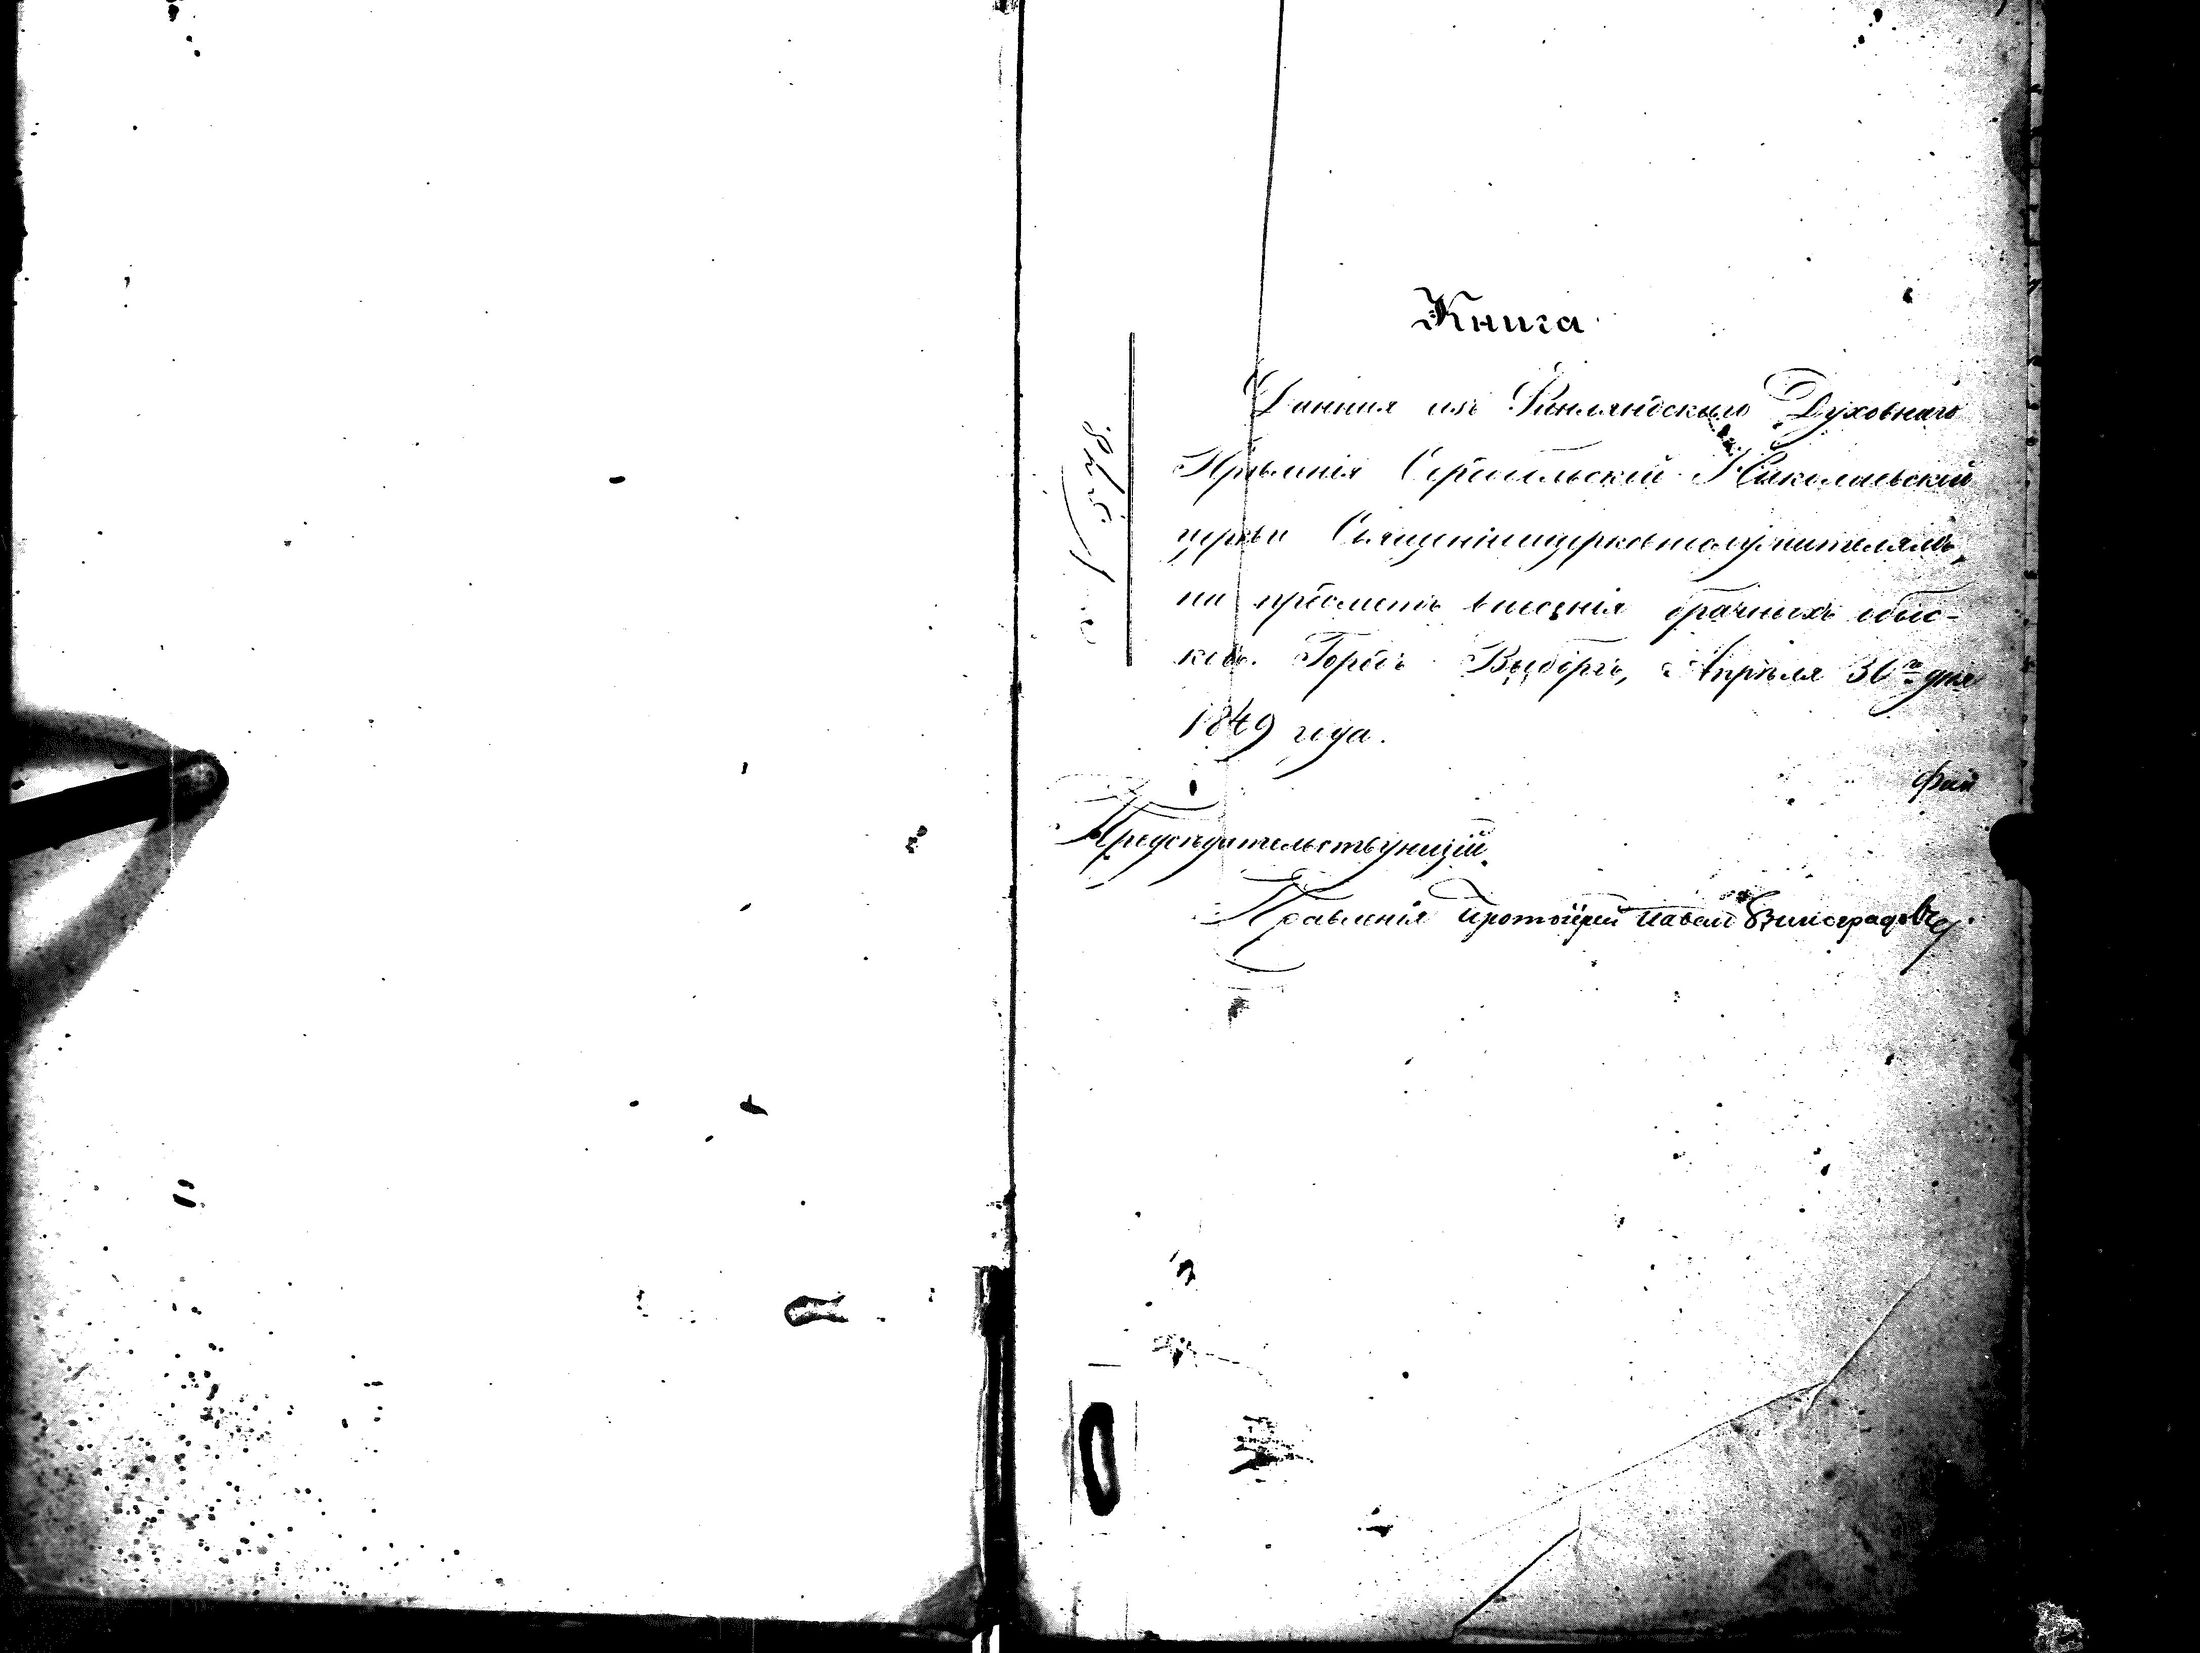 Книга
Данная изъ Финляндскаго Духовнаго
Правленія Сердобольской Николаевской
церкви Священноцерковнослужителямъ,
на предметъ внесенія брачныхъ обыс-
ковъ. Городъ Выборгъ, Апрѣля 30го дня
1849 года.
Предсѣдательствующій
Правленія Протоіерей Павелъ Виноградовъ
№ 578.